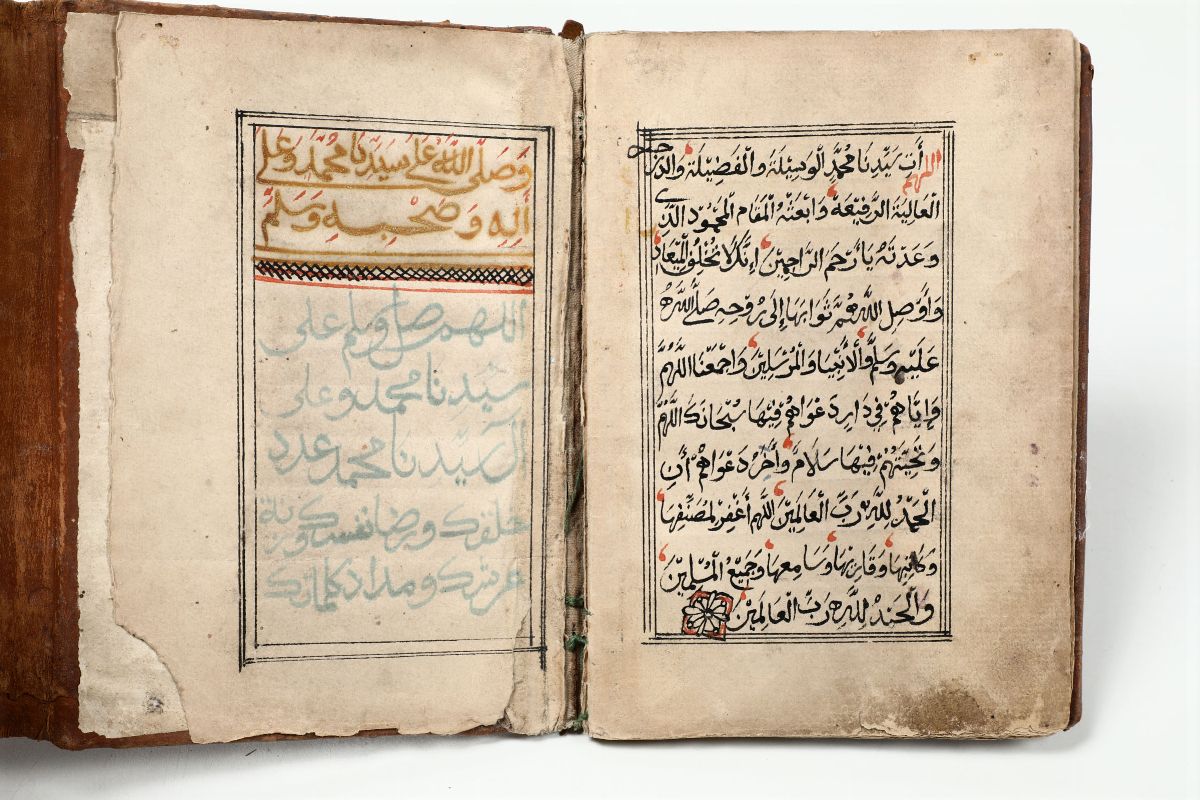 اللهم أت سيدنا محمد الوسيلة والفضيلة والدرجة
العالية الرفيعة وابعثه المقام المحمود الذي
وعدته يا أرحم الراحمين إنك لا تخلف الميعاد
وأوصل اللهم ثوابها إلى روحه صلى الله
عليه وسلم والأنبيا والمرسلين واجمعنا اللهم
وإياهم في دار دعواهم فيها سبحانك اللهم
وتحيتهم فيها سلام وأخر دعواهم أن
الحمد لله رب العالمين اللهم أغفر لمصنفها
وكاتبها وقارئها وسامعها وجميع المسلمين
والحمد لله رب العالمين
وصلى الله على سيدنا محمد وعلى
أله وصحبه وسلم
اللهم صل وسلم على
سيدنا محمد وعلى
آل سيدنا محمد عدد
خلقك ورضا نفسك وزنة
عرشك ومداد كلماتك